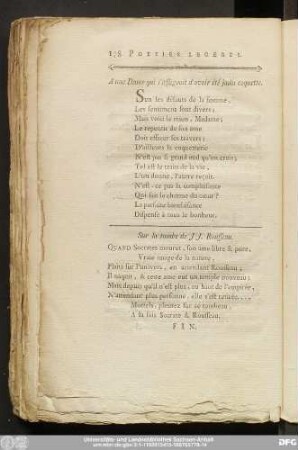 158 POÉSIES LEGERES.
A une Dame qui s'affligeoit d'avoir été jadis coquette.
SUR les défauts de la femme,
Les sentimens sont divers;
Mais voici le mien, Madame;
Le repentir de son ame
Doit effacer ses travers:
D'ailleurs la coquetterie
N'est pas si grand mal qu'on croit;
Tel est le train de la vie,
L'un donne, l'autre reçoit.
N'est-ce pas la complaisance
Qui fait le charme du cœur?
La parfaite bienfaisance
Dispense à tous le bonheur.
Sur la tombe de J. J. Rousseau.
QUAND Socrate mourut, son ame libre & pure,
Vraie image de la nature,
Plana sur l'univers, en attendant Rousseau;
Il naquit, & cette ame eut un temple nouveau;
Mais depuis qu'il n'est plus, au haut de l'empirée,
N'attendant plus personne, elle s'est retirée....
Mortels, pleurez sur ce tombeau,
A la fois Socrate & Rousseau.
FIN.
Universitäts- und Landesbibliothek Sachsen-Anhalt
DFG